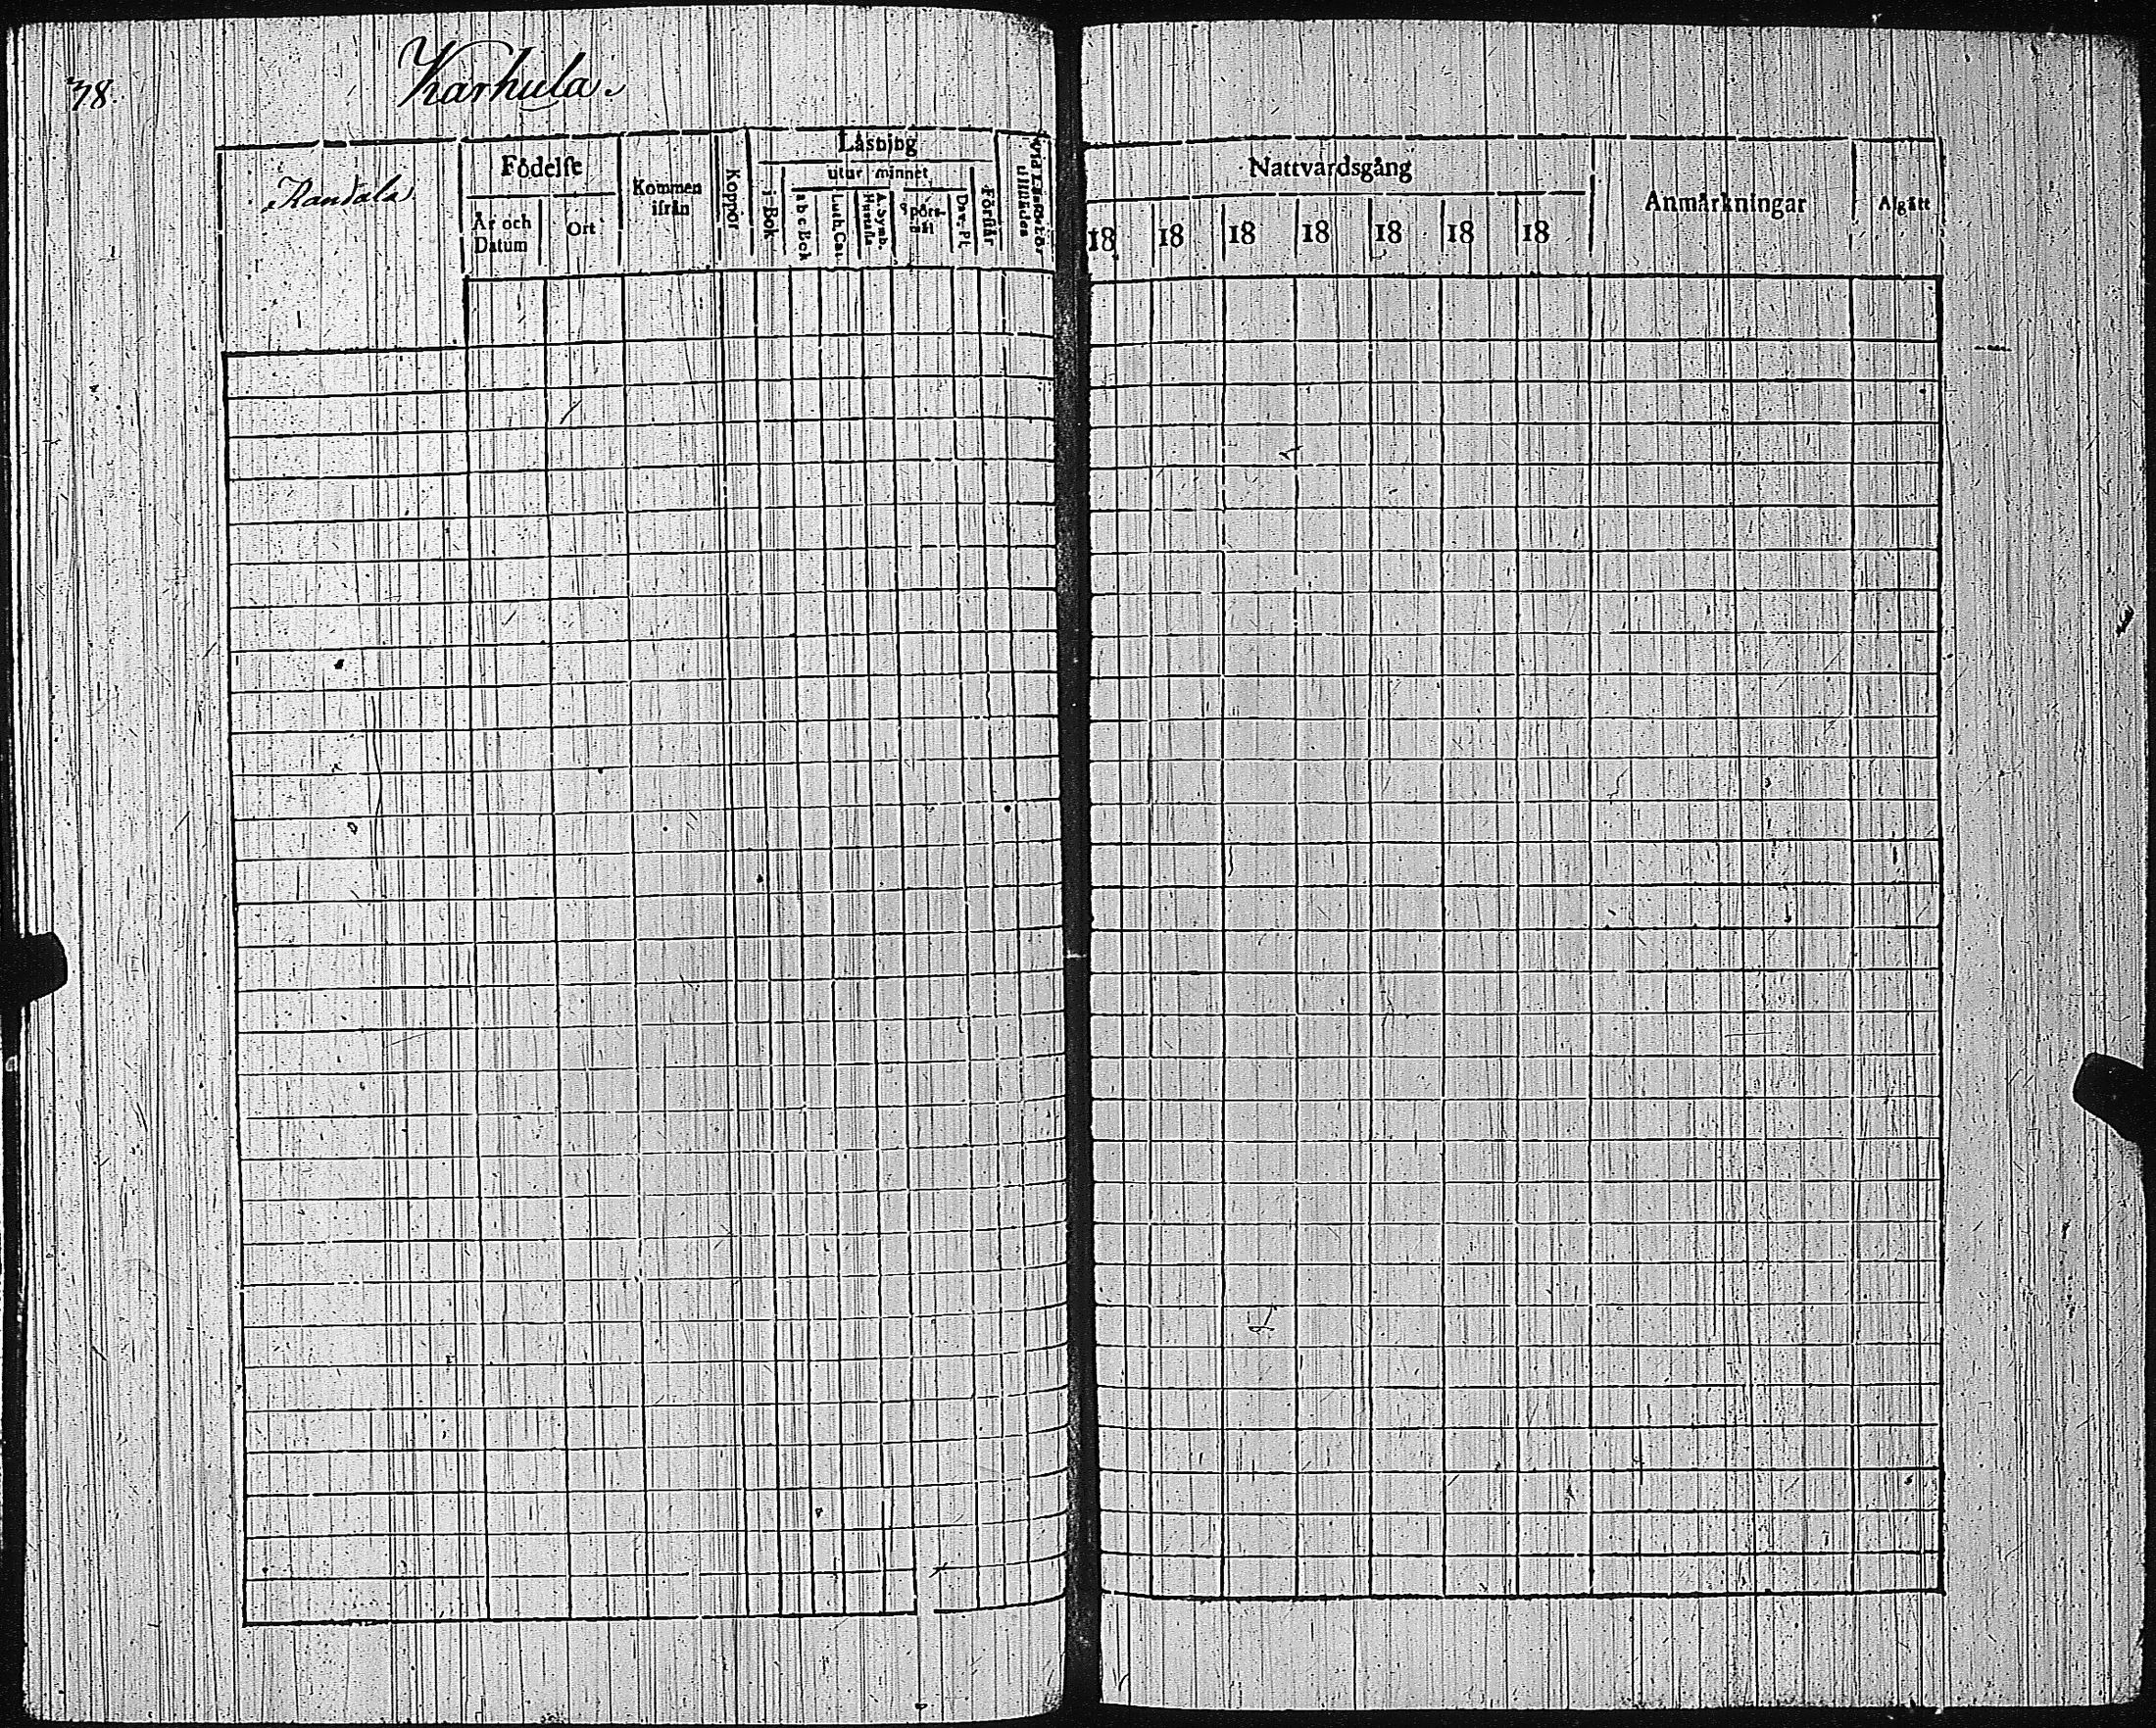 78.
Karhula.
Randala
Födelse
År och Datum
Ort
Kommen ifrån
Koppor
Läsning
i Bok
utur minnet
a b c Bok
Luth. Cat.
Hustafla
A. Symb.
Spörsmål
Dav. Ps.
Förstår
Nattvardsgång
18 18 18 18 18 18 18
Anmärkningar
Afgått